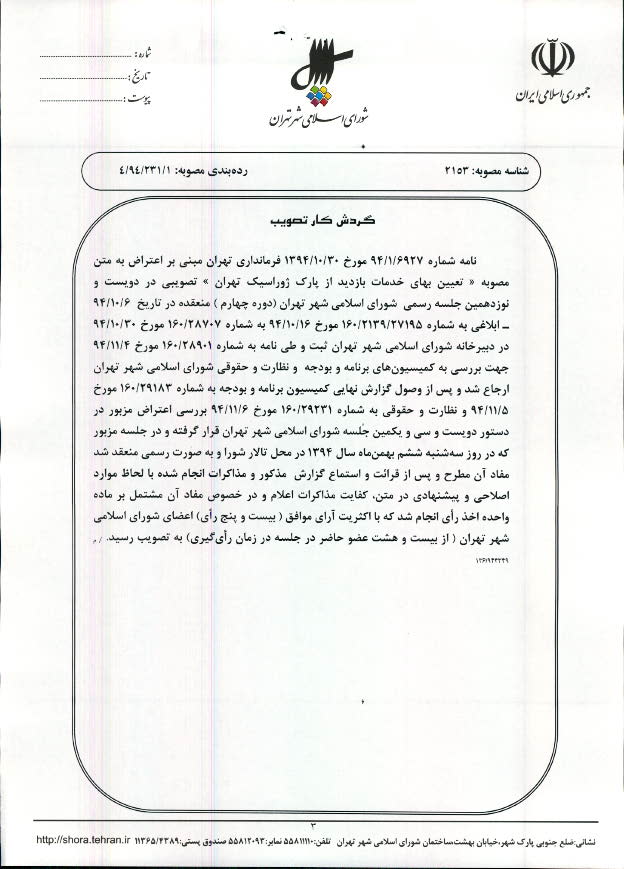 جمهوری اسلامی ایران
شورای اسلامی شهر تهران
شماره :
تاریخ :
پیوست :
شناسه مصوبه: ۲۱۵۳
رده‌بندی مصوبه: ۴/۹۴/۲۳۱/۱
گردش کار تصویب
نامه شماره ۹۴/۱/۶۹۲۷ مورخ ۱۳۹۴/۱۰/۳۰ فرمانداری تهران مبنی بر اعتراض به متن
مصوبه « تعیین بهای خدمات بازدید از پارک ژوراسیک تهران » تصویبی در دویست و
نوزدهمین جلسه رسمی شورای اسلامی شهر تهران (دوره چهارم ) منعقده در تاریخ ۹۴/۱۰/۶
ـ ابلاغی به شماره ۱۶۰/۲۱۳۹/۲۷۱۹۵ مورخ ۹۴/۱۰/۱۶ به شماره ۱۶۰/۲۸۷۰۷ مورخ ۹۴/۱۰/۳۰
در دبیرخانه شورای اسلامی شهر تهران ثبت و طی نامه به شماره ۱۶۰/۲۸۹۰۱ مورخ ۹۴/۱۱/۴
جهت بررسی به کمیسیون‌های برنامه و بودجه و نظارت و حقوقی شورای اسلامی شهر تهران
ارجاع شد و پس از وصول گزارش نهایی کمیسیون برنامه و بودجه به شماره ۱۶۰/۲۹۱۸۳ مورخ
۹۴/۱۱/۵ و نظارت و حقوقی به شماره ۱۶۰/۲۹۲۳۱ مورخ ۹۴/۱۱/۶ بررسی اعتراض مزبور در
دستور دویست و سی و یکمین جلسه شورای اسلامی شهر تهران قرار گرفته و در جلسه مزبور
که در روز سه‌شنبه ششم بهمن‌ماه سال ۱۳۹۴ در محل تالار شورا و به صورت رسمی منعقد شد
مفاد آن مطرح و پس از قرائت و استماع گزارش مذکور و مذاکرات انجام شده با لحاظ موارد
اصلاحی و پیشنهادی در متن، کفایت مذاکرات اعلام و در خصوص مفاد آن مشتمل بر ماده
واحده اخذ رأی انجام شد که با اکثریت آرای موافق ( بیست و پنج رأی) اعضای شورای اسلامی
شهر تهران ( از بیست و هشت عضو حاضر در جلسه در زمان رأی‌گیری) به تصویب رسید.
۳
نشانی:ضلع جنوبی پارک شهر،خیابان بهشت،ساختمان شورای اسلامی شهر تهران تلفن:۵۵۸۱۱۱۱۰ نمابر:۵۵۸۱۲۰۹۳ صندوق پستی:۱۱۳۶۵/۴۳۸۹ http://shora.tehran.ir